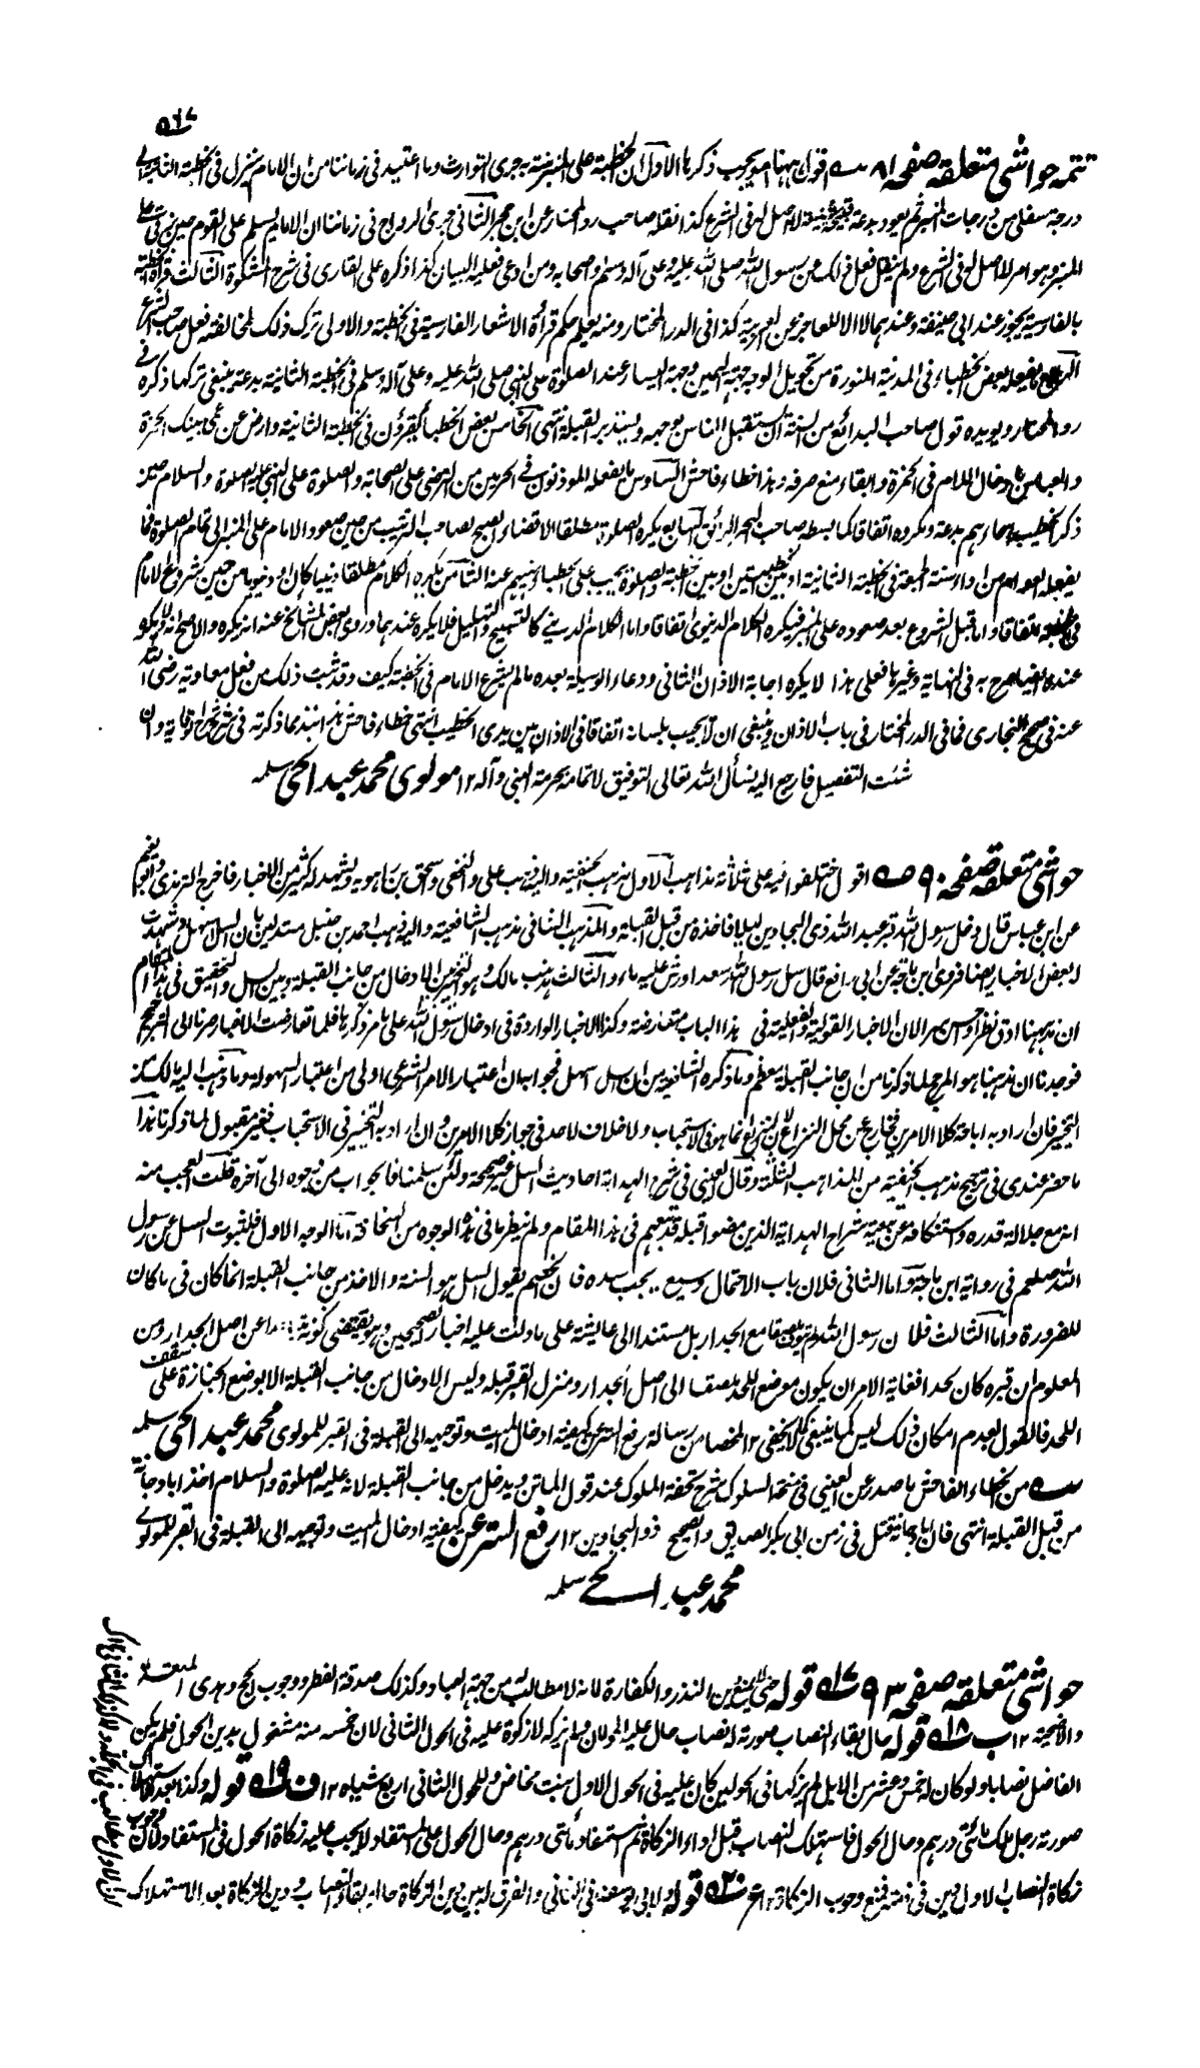 تتمه حواشی متعلقه صفحه ۸۱ اقول ههنا امور يجب ذكرها الاول ان الخطبة على المنبر سنة به جرى التوارث وما اعتيد فى زماننا من ان الامام ينزل فى الخطبة الثانية الى
درجة سفلى من درجات المنبر ثم يعود بدعة قبيحة شنيعة لا اصل له فى الشرع كذا نقله صاحب رد المحتار عن ابن حجر الثانى جرى الرواج فى زماننا ان الامام يسلم على القوم حين يرقى على
المنبر وهو امر لا اصل له فى الشرع ولم ينقل فعل ذلك عن رسول الله صلى الله عليه وعلى آله وسلم واصحابه ومن ادعى فعليه البيان كذا ذكره على القارى فى شرح المشكوة الثالث قراءة الخطبة
بالفارسية يجوز عند ابى حنيفة وعندهما لا الا للعاجز عن العربية كذا فى الدر المختار ومنه يعلم حكم قرأة الاشعار الفارسية فى الخطبة والاولى ترك ذلك لمخالفته فعل صاحب الشرع
الرابع ما يفعله بعض الخطباء فى المدينة المنورة من تحويل الوجه جهة اليمين وجهة اليسار عند الصلوة على النبى صلى الله عليه وعلى آله وسلم فى الخطبة الثانية بدعة ينبغى تركها ذكره فى
رد المحتار ويؤيده قول صاحب البدائع من السنة ان يستقبل الناس بوجهه ويستدبر القبلة انتهى الخامس بعض الخطباء يقرؤن فى الخطبة الثانية وارض عن عمى نبيك الحمزة
والعباس بادخال اللام فى الحمزة وابقاء منع صرفه وهذا خطاء فاحش السادس ما يفعله المؤذنون فى الحرمين من الترضى على الصحابة والصلوة على النبى عليه الصلوة والسلام حين
ذكر الخطيب اسماءهم بدعة ومكروه اتفاقا كما بسطه صاحب البحر الرائق السابع يكره الصلوة مطلقا الا قضاء الصبح لصاحب الترتيب من حين صعود الامام على المنبر الى تمام الصلوة فما
يفعله العوام من اداء سنة الجمعة فى الخطبة الثانية او بين الخطبتين او بين الخطبة والصلوة يجب على الخطباء نهيهم عنه الثامن يكره الكلام مطلقا دينيا كان او دنيويا من حين شروع الامام
فى الخطبة اتفاقا واما قبل الشروع بعد صعوده على المنبر فيكره الكلام الدنيوى اتفاقا واما الكلام الدينى كالتسبيح والتهليل فلا يكره عندهما وروى بعض المشائخ عنه انه يكره والاصح انه لا يكره
عنده ايضا صرح به فى النهاية وغيرها فعلى هذا لا يكره اجابة الاذان الثانى ودعاء الوسيلة بعده ما لم يشرع الامام فى الخطبة كيف وقد ثبت ذلك من فعل معاوية رضى الله
عنه فى صحيح البخارى فما فى الدر المختار فى باب الاذان وينبغى ان لا يجيب بلسانه اتفاقا فى الاذان بين يدى الخطيب انتهى خطاء فاحش هذا نبذ مما ذكرته فى شرح شرح الوقاية وان
شئت التفصيل فارجع اليه نسأل الله تعالى التوفيق لاتمامه بحرمة النبى وآله ۱۲ مولوى محمد عبد الحى سلمه
حواشی متعلقه صفحه ۹۰ اقول اختلفوا فيه على ثلاثة مذاهب الاول مذهب الحنفية واليه ذهب على والنخعى واسحق بن راهويه ويشهد له كثير من الاخبار فاخرج الترمذى وابو نعيم
عن ابن عباس قال دخل رسول الله قبر عبد الله ذى البجادين ليلا فاخذه من قبل القبلة والمذهب الثانى مذهب الشافعية واليه ذهب احمد بن حنبل مستدلين بان السل اسهل وشهدت
له بعض الاخبار ايضا فروى ابن ماجة عن ابى رافع قال سل رسول الله سعدا ورش عليه ماء والثالث مذهب مالك وهو التخيير بين الادخال من جانب القبلة وبين السل والتحقيق فى هذا المقام
ان مذهبنا ادق نظرا واحسن الان الاخبار القولية والفعلية فى هذا الباب متعارضة وكذا الاخبار الواردة فى ادخال رسول الله على ما مر ذكرها فلما تعارضت الاخبار صرنا الى الترجيح
فوجدنا ان مذهبنا هو المرجح لما ذكرنا من ان جانب القبلة معظم وما ذكره الشافعية من ان السل اسهل فجوابه ان اعتبار الامر الشرعى اولى من اعتبار السهولة وما ذهب اليه مالك من
التخيير فان اراد به اباحة كلا الامرين فخارج عن محل النزاع لان النزاع انما هو فى الاستحباب ولا خلاف لاحد فى جواز كلا الامرين وان اراد به التخيير فى الاستحباب فغير مقبول لما ذكرنا هذا
ما حضر عندى فى ترجيح مذهب الحنفية من المذاهب الثلثة وقال العينى فى شرح الهداية احاديث السل غير صحيحة ولئن سلمنا فالجواب من وجوه الى آخره قلت العجب منه
انه مع جلالة قدره واستنكافه عن تبعية شراح الهداية الذين مضوا قبله قد تبعهم فى هذا المقام ولم ينظر ما فى هذه الوجوه من السخافة اما الوجه الاول فلثبوت السل عن رسول
الله صلعم فى رواية ابن ماجة واما الثانى فلان باب الاحتمال وسيع يجب سده فان الخصم يقول السل هو السنة والاخذ من جانب القبلة انما كان فى ما كان
للضرورة واما الثالث فلان رسول الله لم يتوف ملصقا مع الجدار بل مستندا الى عائشة على ما دلت عليه اخبار الصحيحين وهو يقتضى كونه عن اصل الجدار ومن
المعلوم ان قبره كان لحدا فغاية الامر ان يكون موضع اللحد ملصقا الى اصل الجدار ومنزل القبر قبله وليس الادخال من جانب القبلة الا بوضع الجنازة على سقف
اللحد فالقول بعدم امكان ذلك ليس كما ينبغى كما لا يخفى ۱۲ ملخصا من رسالة رفع الستر عن كيفية ادخال الميت وتوجيهه الى القبلة فى القبر للمولوى محمد عبد الحى سلمه
من الخطاء الفاحش ما صدر عن العينى فى منحة السلوك شرح تحفة الملوك عند قول الماتن ويدخل من جانب القبلة لانه عليه الصلوة والسلام اخذ ابا دجانة
من قبل القبلة انتهى فان ابا دجانة قتل فى زمن ابى بكر الصديق والصحيح ذو البجادين ۱۲ رفع الستر عن كيفية ادخال الميت وتوجيهه الى القبلة فى القبر للمولوى
محمد عبد الحى سلمه
حواشی متعلقه صفحه ۹۳ قوله دين النذر والكفارة لانه لا مطالب له من جهة العباد وكذلك صدقة الفطر ووجوب الحج وهدى المتعة
والاضحية ۱۲ ب قوله حال بقاء النصاب صورته له نصاب حال عليه الحولان ولم يزكه لا زكوة عليه فى الحول الثانى لان خمسه منه مشغول بدين الحول فلم يكن
الفاضل نصابا ولو كان له خمس وعشرين من الابل لم يزكها فى الحولين كان عليه فى الحول الاول بنت مخاض وللحول الثانى اربع شياه ۱۲ ف قوله وكذا بعد الاستهلاك
صورته رجل ملك مائتى درهم وحال الحول فاستهلك النصاب قبل اداء الزكاة ثم استفاد مائتى درهم وحال الحول على المستفاد لا يجب عليه زكاة الحول فى المستفاد لان وجوب
زكاة النصاب الاول دين فى ذمته فمنع وجوب الزكاة ۱۲ ع قوله ولابى يوسف فى الثانى والفرق له بين دين الزكاة حال بقاء النصاب ودين الزكاة بعد الاستهلاك